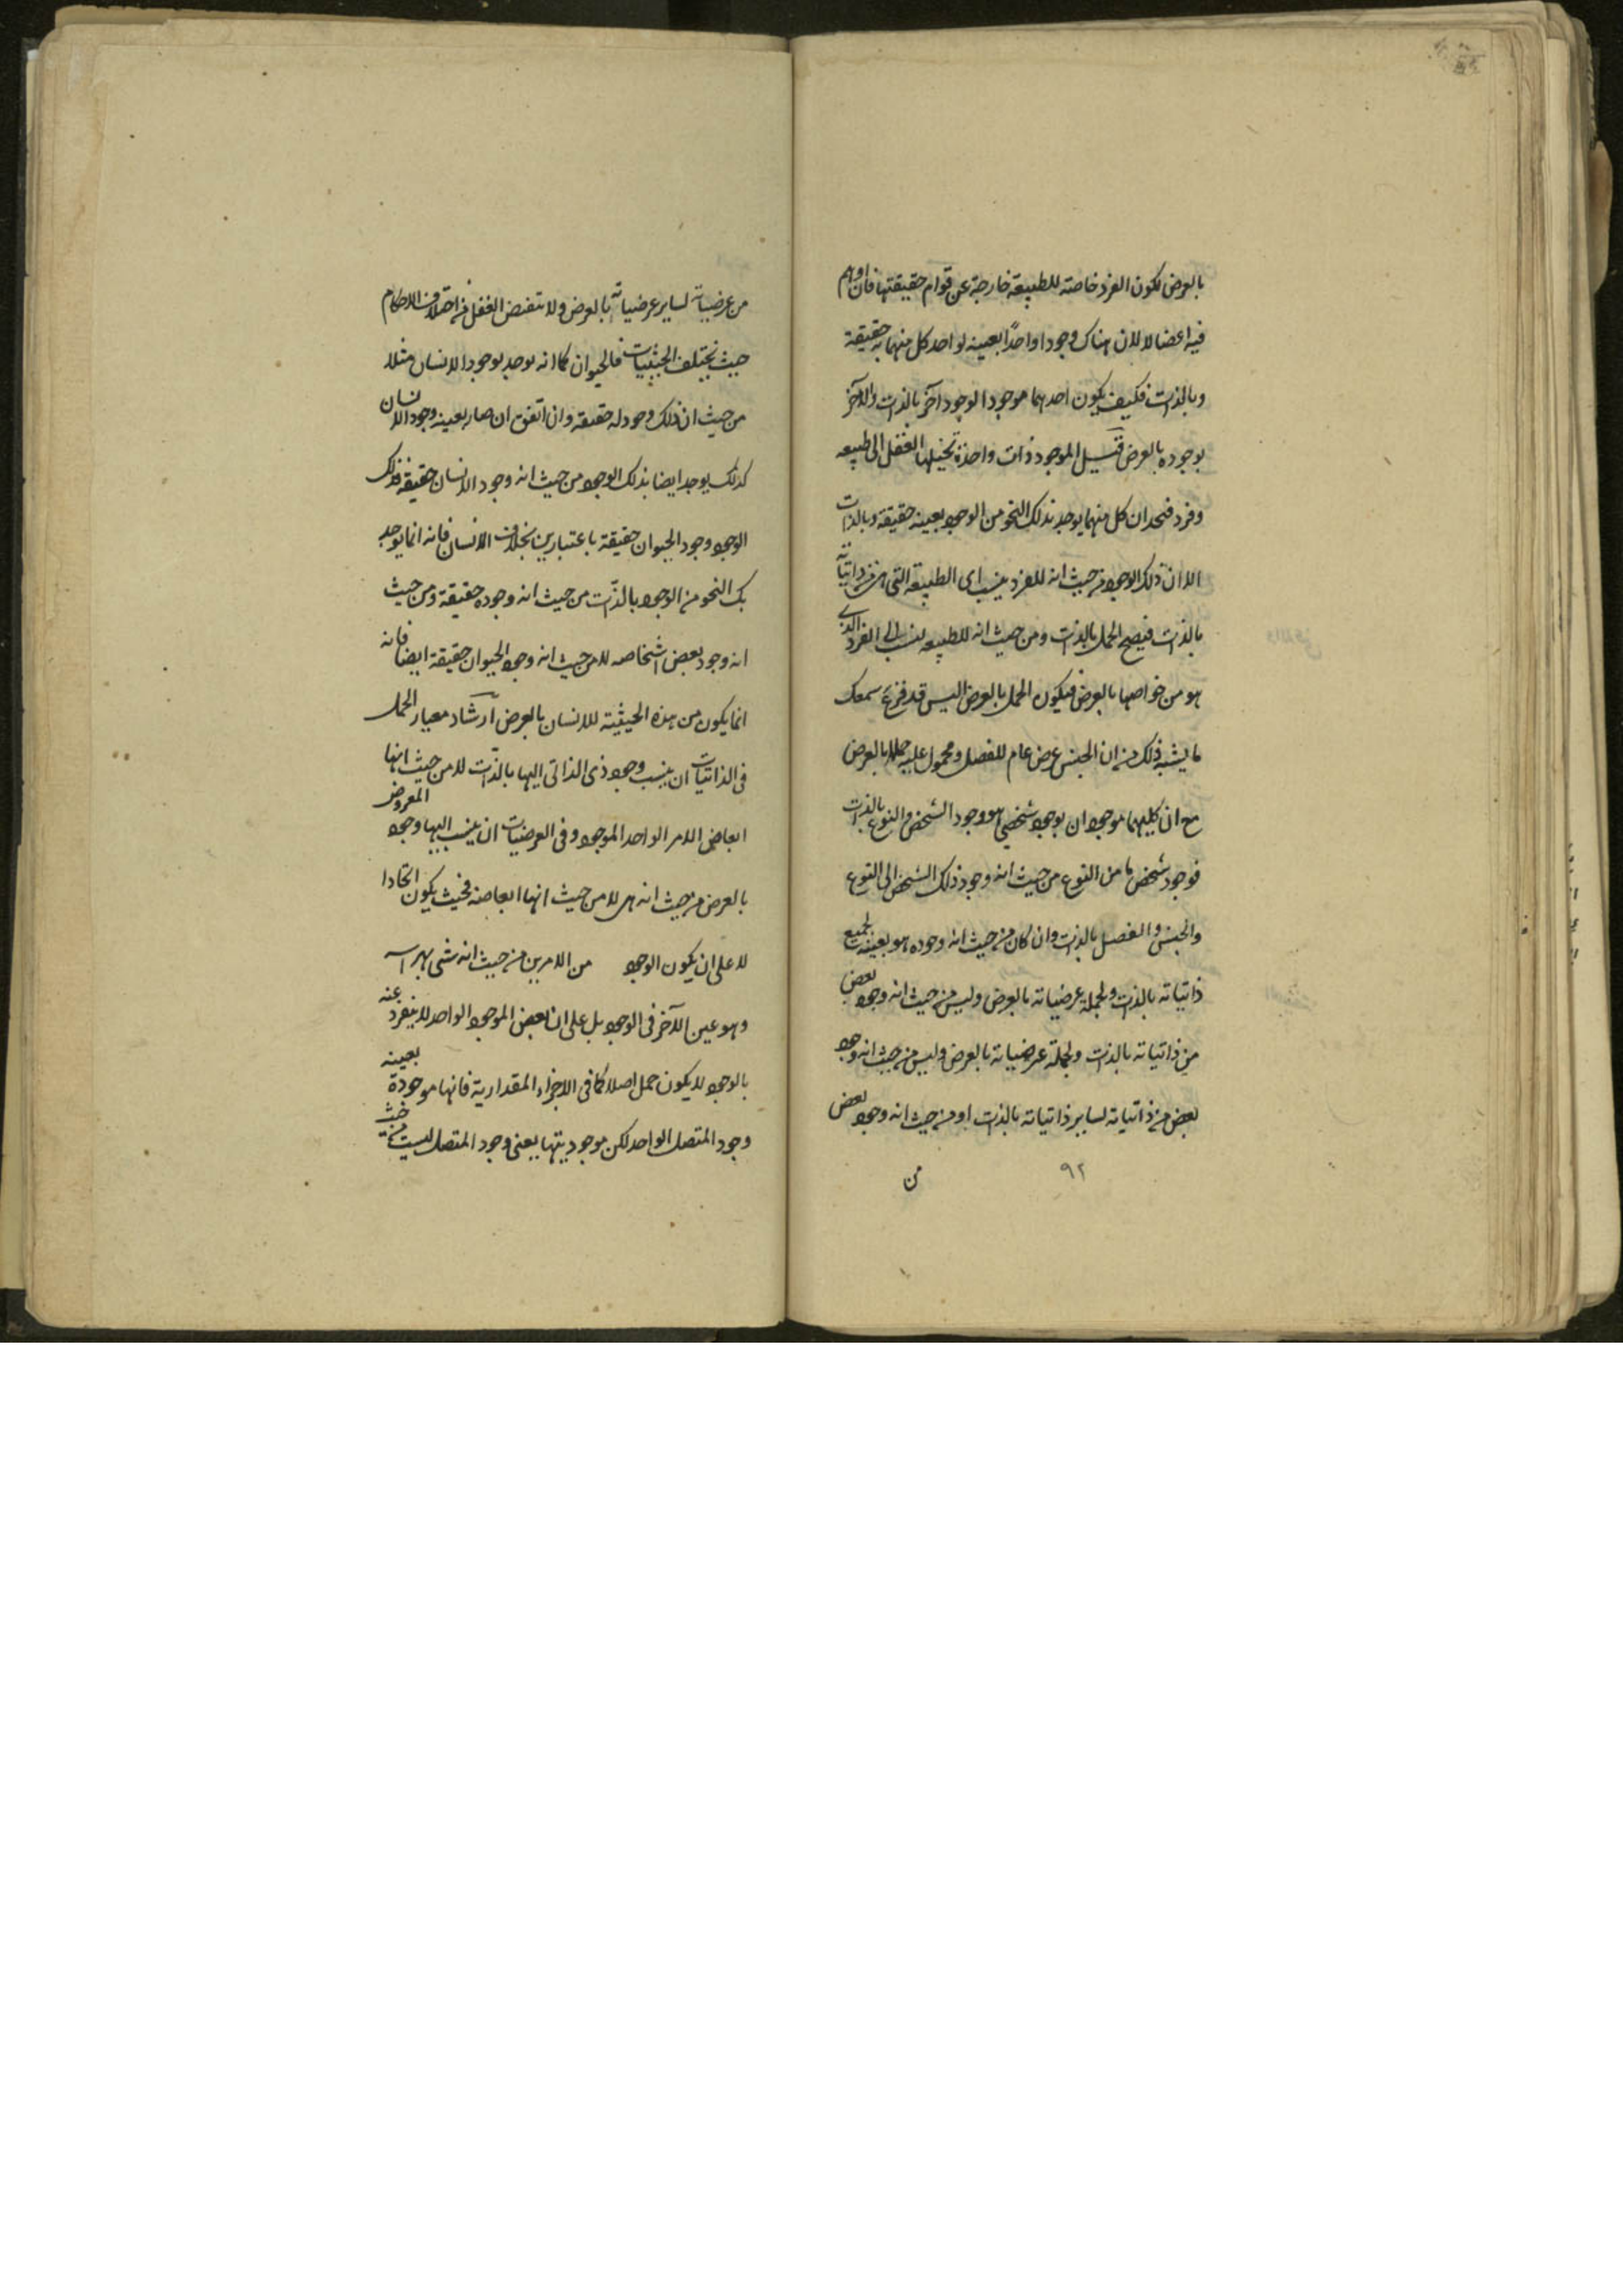 بالعرض لكون الفرد خاصة للطبيعة خارجة عن قوام حقيقتها فان اوهم
فيه اعضالا لان هناك وجودا واحدًا بعينه لواحد كل منهما به حقيقة
وبالذات فكيف يكون احدهما موجودا لوجود آخر بالذات والآخر
بوجوده بالعرض قيل الموجود ذات واحدة تحيلها العقل الى طبيعه
وفرد فنحد ان كل منهما يوجد بذلك النحو من الوجود بعينه حقيقة وبالذات
الا ان ذلك الوجود من حيث انه للفرد ينسب الى الطبيعة التى هى من ذاتياته
بالذات فيصح الحمل بالذات ومن حيث انه للطبيعه ينسب الى الفرد الذى
هو من خواصها بالعرض فيكون الحمل بالعرض اليس قد قرع سمعك
ما يشبه ذلك من ان الجنس عرض عام للفصل ومحمول عليه حملا بالعرض
مع ان كليهما موجودان بوجود شخصى هو وجود الشخص والنوع بالذات
فوجود شخص ما من النوع من حيث انه وجود ذلك الشخص الى النوع
والجنس والفصل بالذات وان كان من حيث انه وجوده هو بعينه لجميع
ذاتياته بالذات ولجملة عرضياته بالعرض وليس من حيث انه وجود بعض
من ذاتياته بالذات ولجملة عرضياته بالعرض وليس من حيث انه وجود
بعض من ذاتياته لساير ذاتياته بالذات او من حيث انه وجود بعض
٩٢
من
من عرضياته لساير عرضياته بالعرض ولا تنقض العقل من اختلاف الاحكام
حيث يختلف الحيثيات فالحيوان كما انه يوجد بوجود الانسان مثلا
من حيث ان ذلك وجود له حقيقه وان اتفق ان صار بعينه وجود الانسان
كذلك يوجد ايضا بذلك الوجود من حيث انه وجود الانسان حقيقة فذلك
الوجود وجود الحيوان حقيقة باعتبارين بخلاف الانسان فانه انما يوجد
بك النحو من الوجود بالذات من حيث انه وجوده حقيقة ومن حيث
انه وجود بعض اشخاصه لا من حيث انه وجود الحيوان حقيقة ايضا فانه
انما يكون من هذه الحيثية للانسان بالعرض ارشاد معيار الحمل
فى الذاتيات ان ينسب وجود ذى الذاتى اليها بالذات لا من حيث انها
ابعاض الامر الواحد الموجود وفى العرضيات ان ينسب اليها وجود المعروض
بالعرض من حيث انه هى لا من حيث انها ابعاضه فحيث يكون اتحادا
لا على ان يكون الوجود من الامرين من حيث انه شى براسه
وهو عين الآخر فى الوجود بل على ان بعض الموجود الواحد لا ينفرد عنه
بالوجود لا يكون حمل اصلا كما فى الاجزاء المقدارية فانها موجودة بعينه
وجود المتصل الواحد لكن موجوديتها بعنى وجود المتصل ليست من حيث